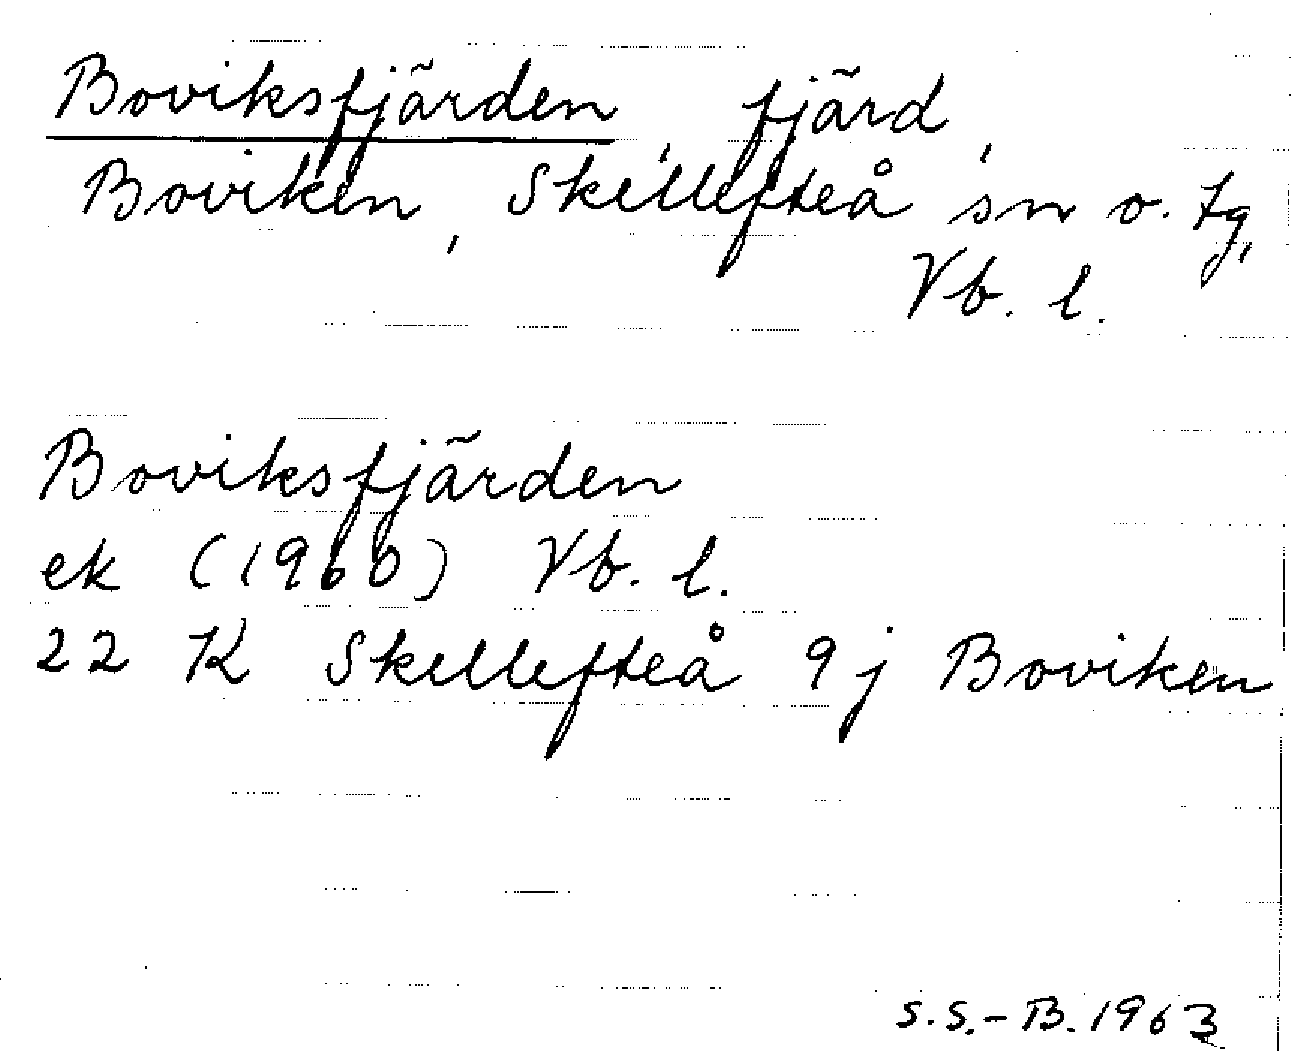 Boviksfjärden, fjärd,
Boviken, Skellefteå sn o. tg,
Vb. l.
Boviksfjärden
ek (1960) Vb. l.
22 K Skellefteå 9j Boviken
S.S.-B. 1963